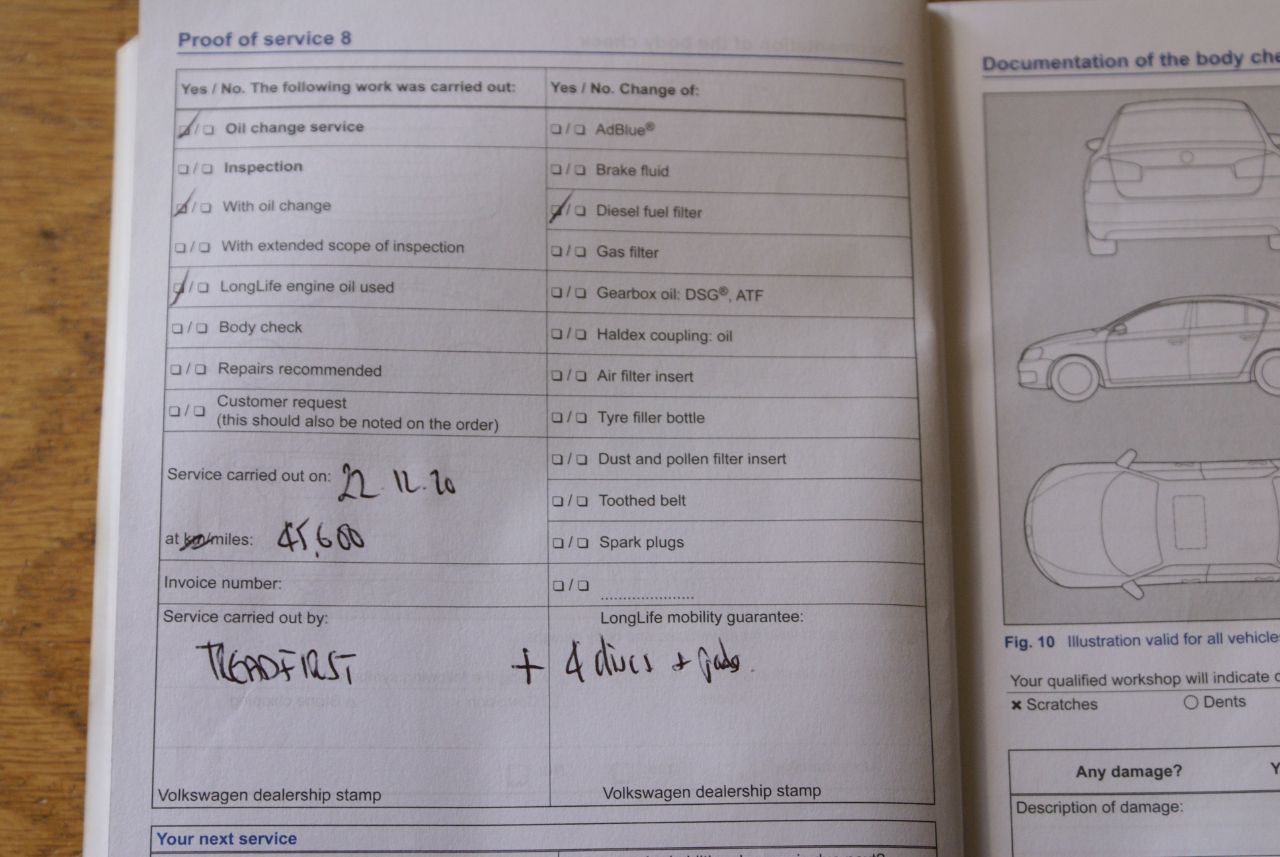 Proof of service 8
Yes / No. The following work was carried out:
☑ / ☐ Oil change service
☐ / ☐ Inspection
☑ / ☐ With oil change
☐ / ☐ With extended scope of inspection
☑ / ☐ LongLife engine oil used
☐ / ☐ Body check
☐ / ☐ Repairs recommended
☐ / ☐ Customer request
(this should also be noted on the order)
Service carried out on: 22.12.20
at km/miles: 45,600
Invoice number:
Service carried out by:
TREADFIRST
Volkswagen dealership stamp
Yes / No. Change of:
☐ / ☐ AdBlue®
☐ / ☐ Brake fluid
☑ / ☐ Diesel fuel filter
☐ / ☐ Gas filter
☐ / ☐ Gearbox oil: DSG®, ATF
☐ / ☐ Haldex coupling: oil
☐ / ☐ Air filter insert
☐ / ☐ Tyre filler bottle
☐ / ☐ Dust and pollen filter insert
☐ / ☐ Toothed belt
☐ / ☐ Spark plugs
☐ / ☐ .....................
LongLife mobility guarantee:
+ 4 discs + pads.
Volkswagen dealership stamp
Your next service
Documentation of the body che
Fig. 10 Illustration valid for all vehicle
Your qualified workshop will indicate
× Scratches
○ Dents
Any damage?
Y
Description of damage: